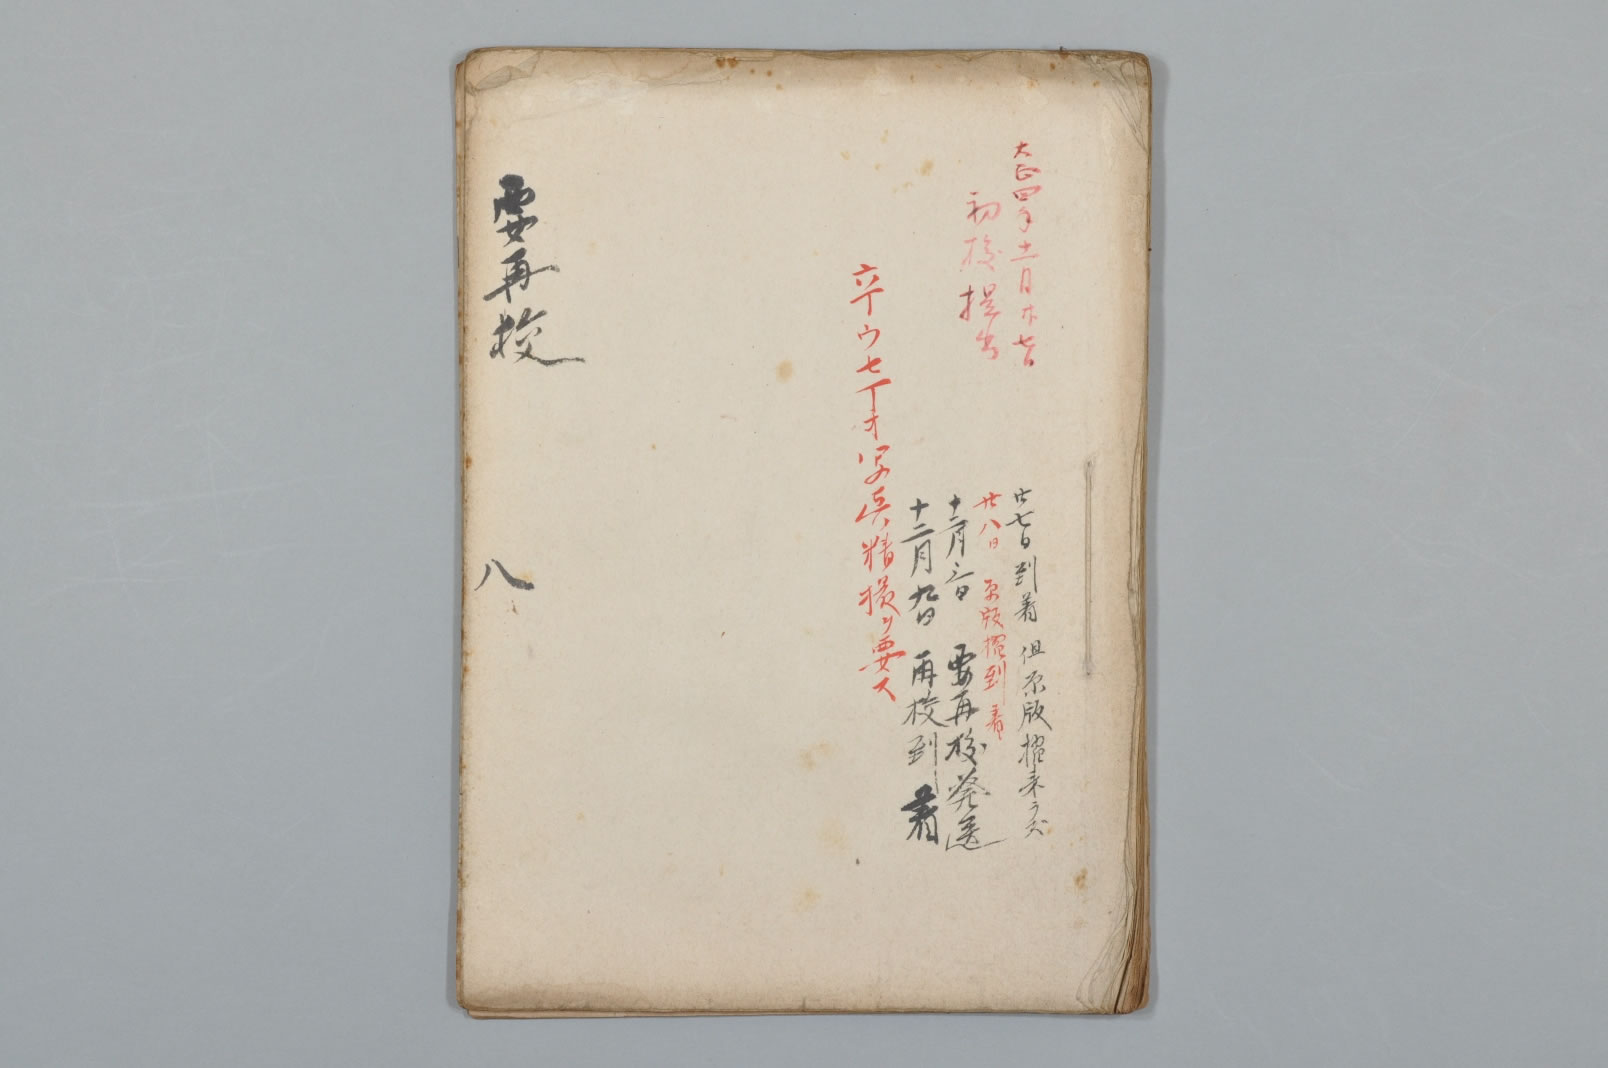 大正四年十一月廿七日
初校提出
廿七日到着但原版摺来ラズ
廿八日原版摺到着
十二月三日要再校発送
十二月九日再校到着
六丁ウ七丁オ写真精摺ヲ要ス
要再校
八